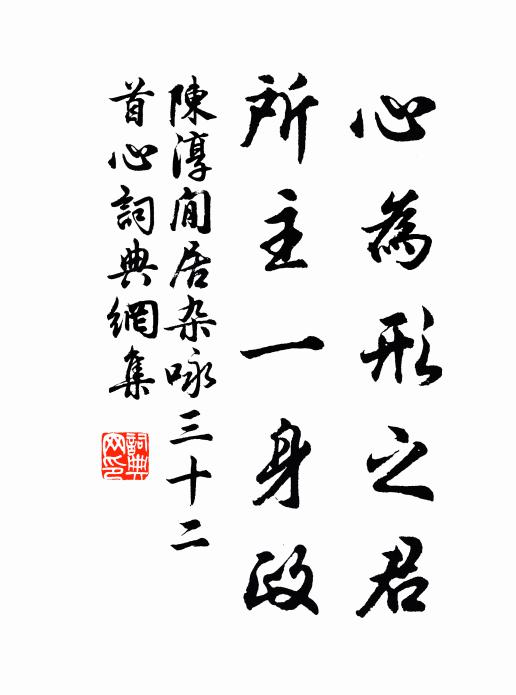 心為形之君
所主一身政
陳淳閒居杂咏三十二
首心詞典網集
詞典
网印